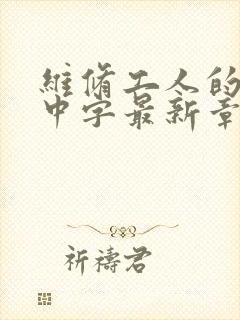 維脩工人的
中字最新章
祈禱君